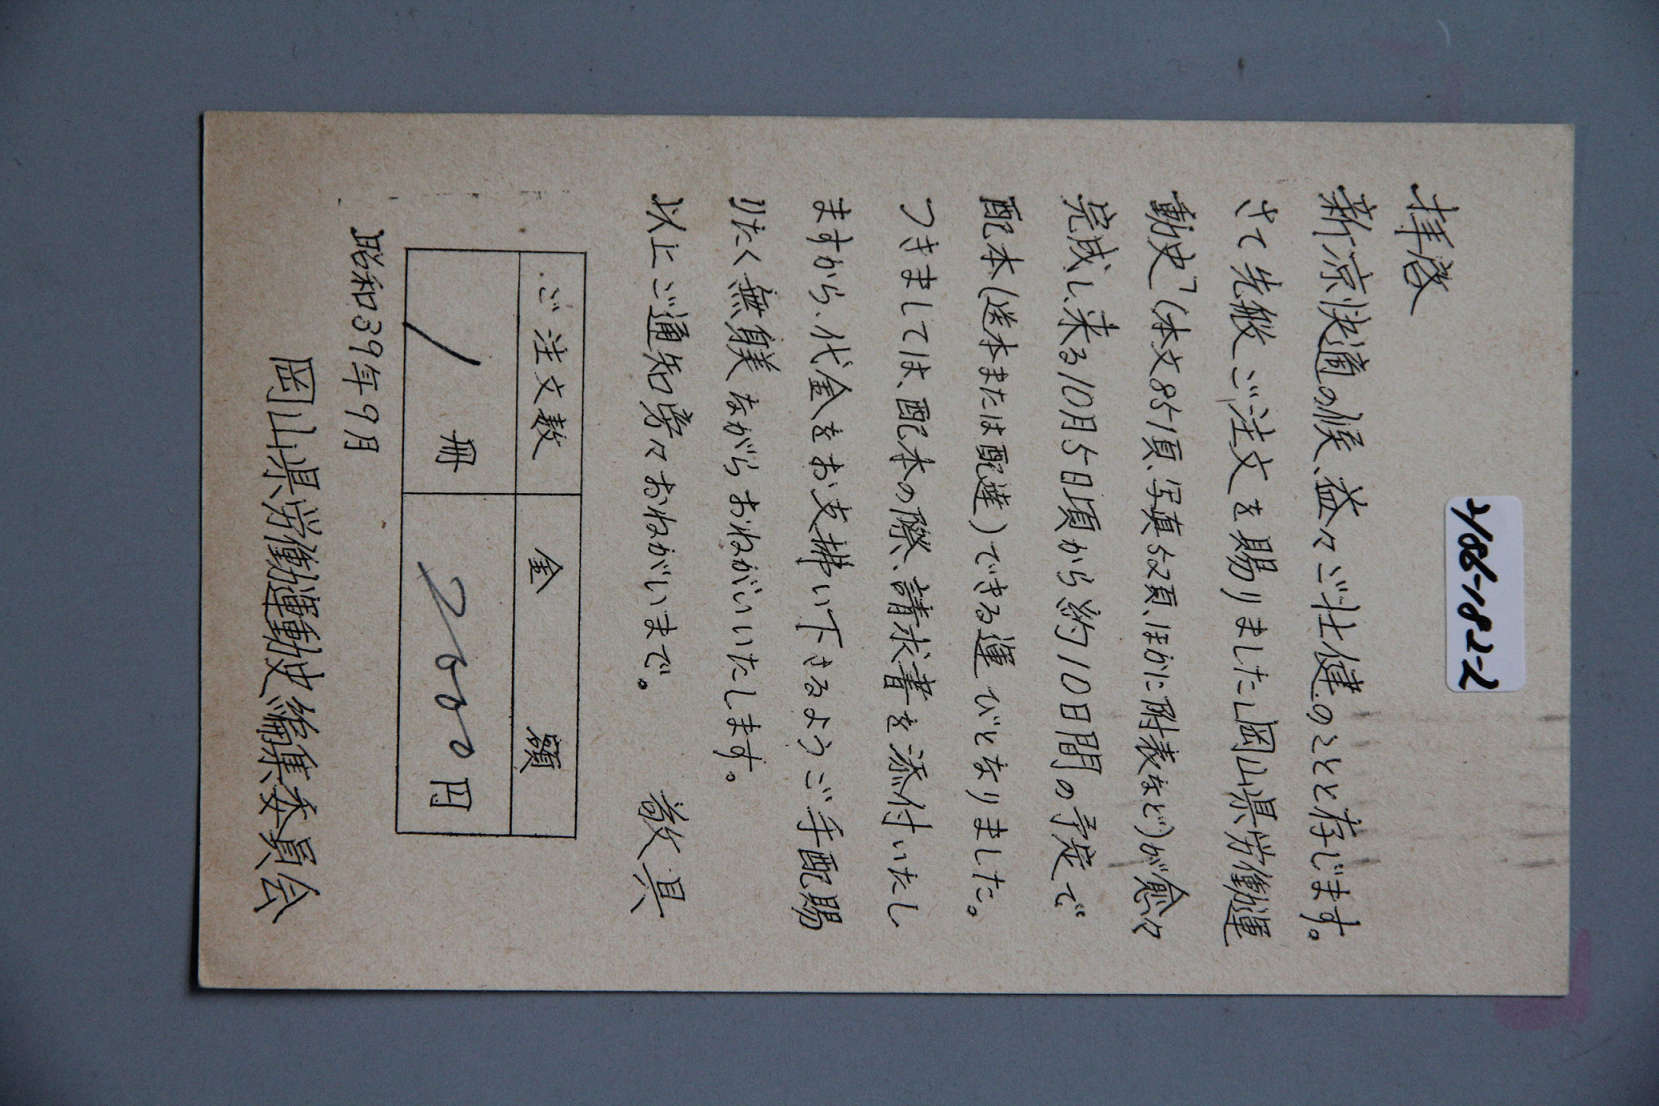 拝啓
新凉快適の候、益々ご壮健のことと存じます。
さて先般ご注文を賜りました岡山県労働運
動史」(本文851頁、写真52頁、ほかに附表など)が愈々
完成し、来る10月5日頃から約10日間の予定で
配本(送本または配達)できる運びとなりました。
つきましては、配本の際、請求書を添付いたし
ますから、代金をお支拂い下さるようご手配賜
りたく無躾ながらおねがいいたします。
以上ご通知旁々おねがいまで。
敬具
ご注文数 金額
1冊 2000円
昭和39年9月
岡山県労働運動史編集委員会